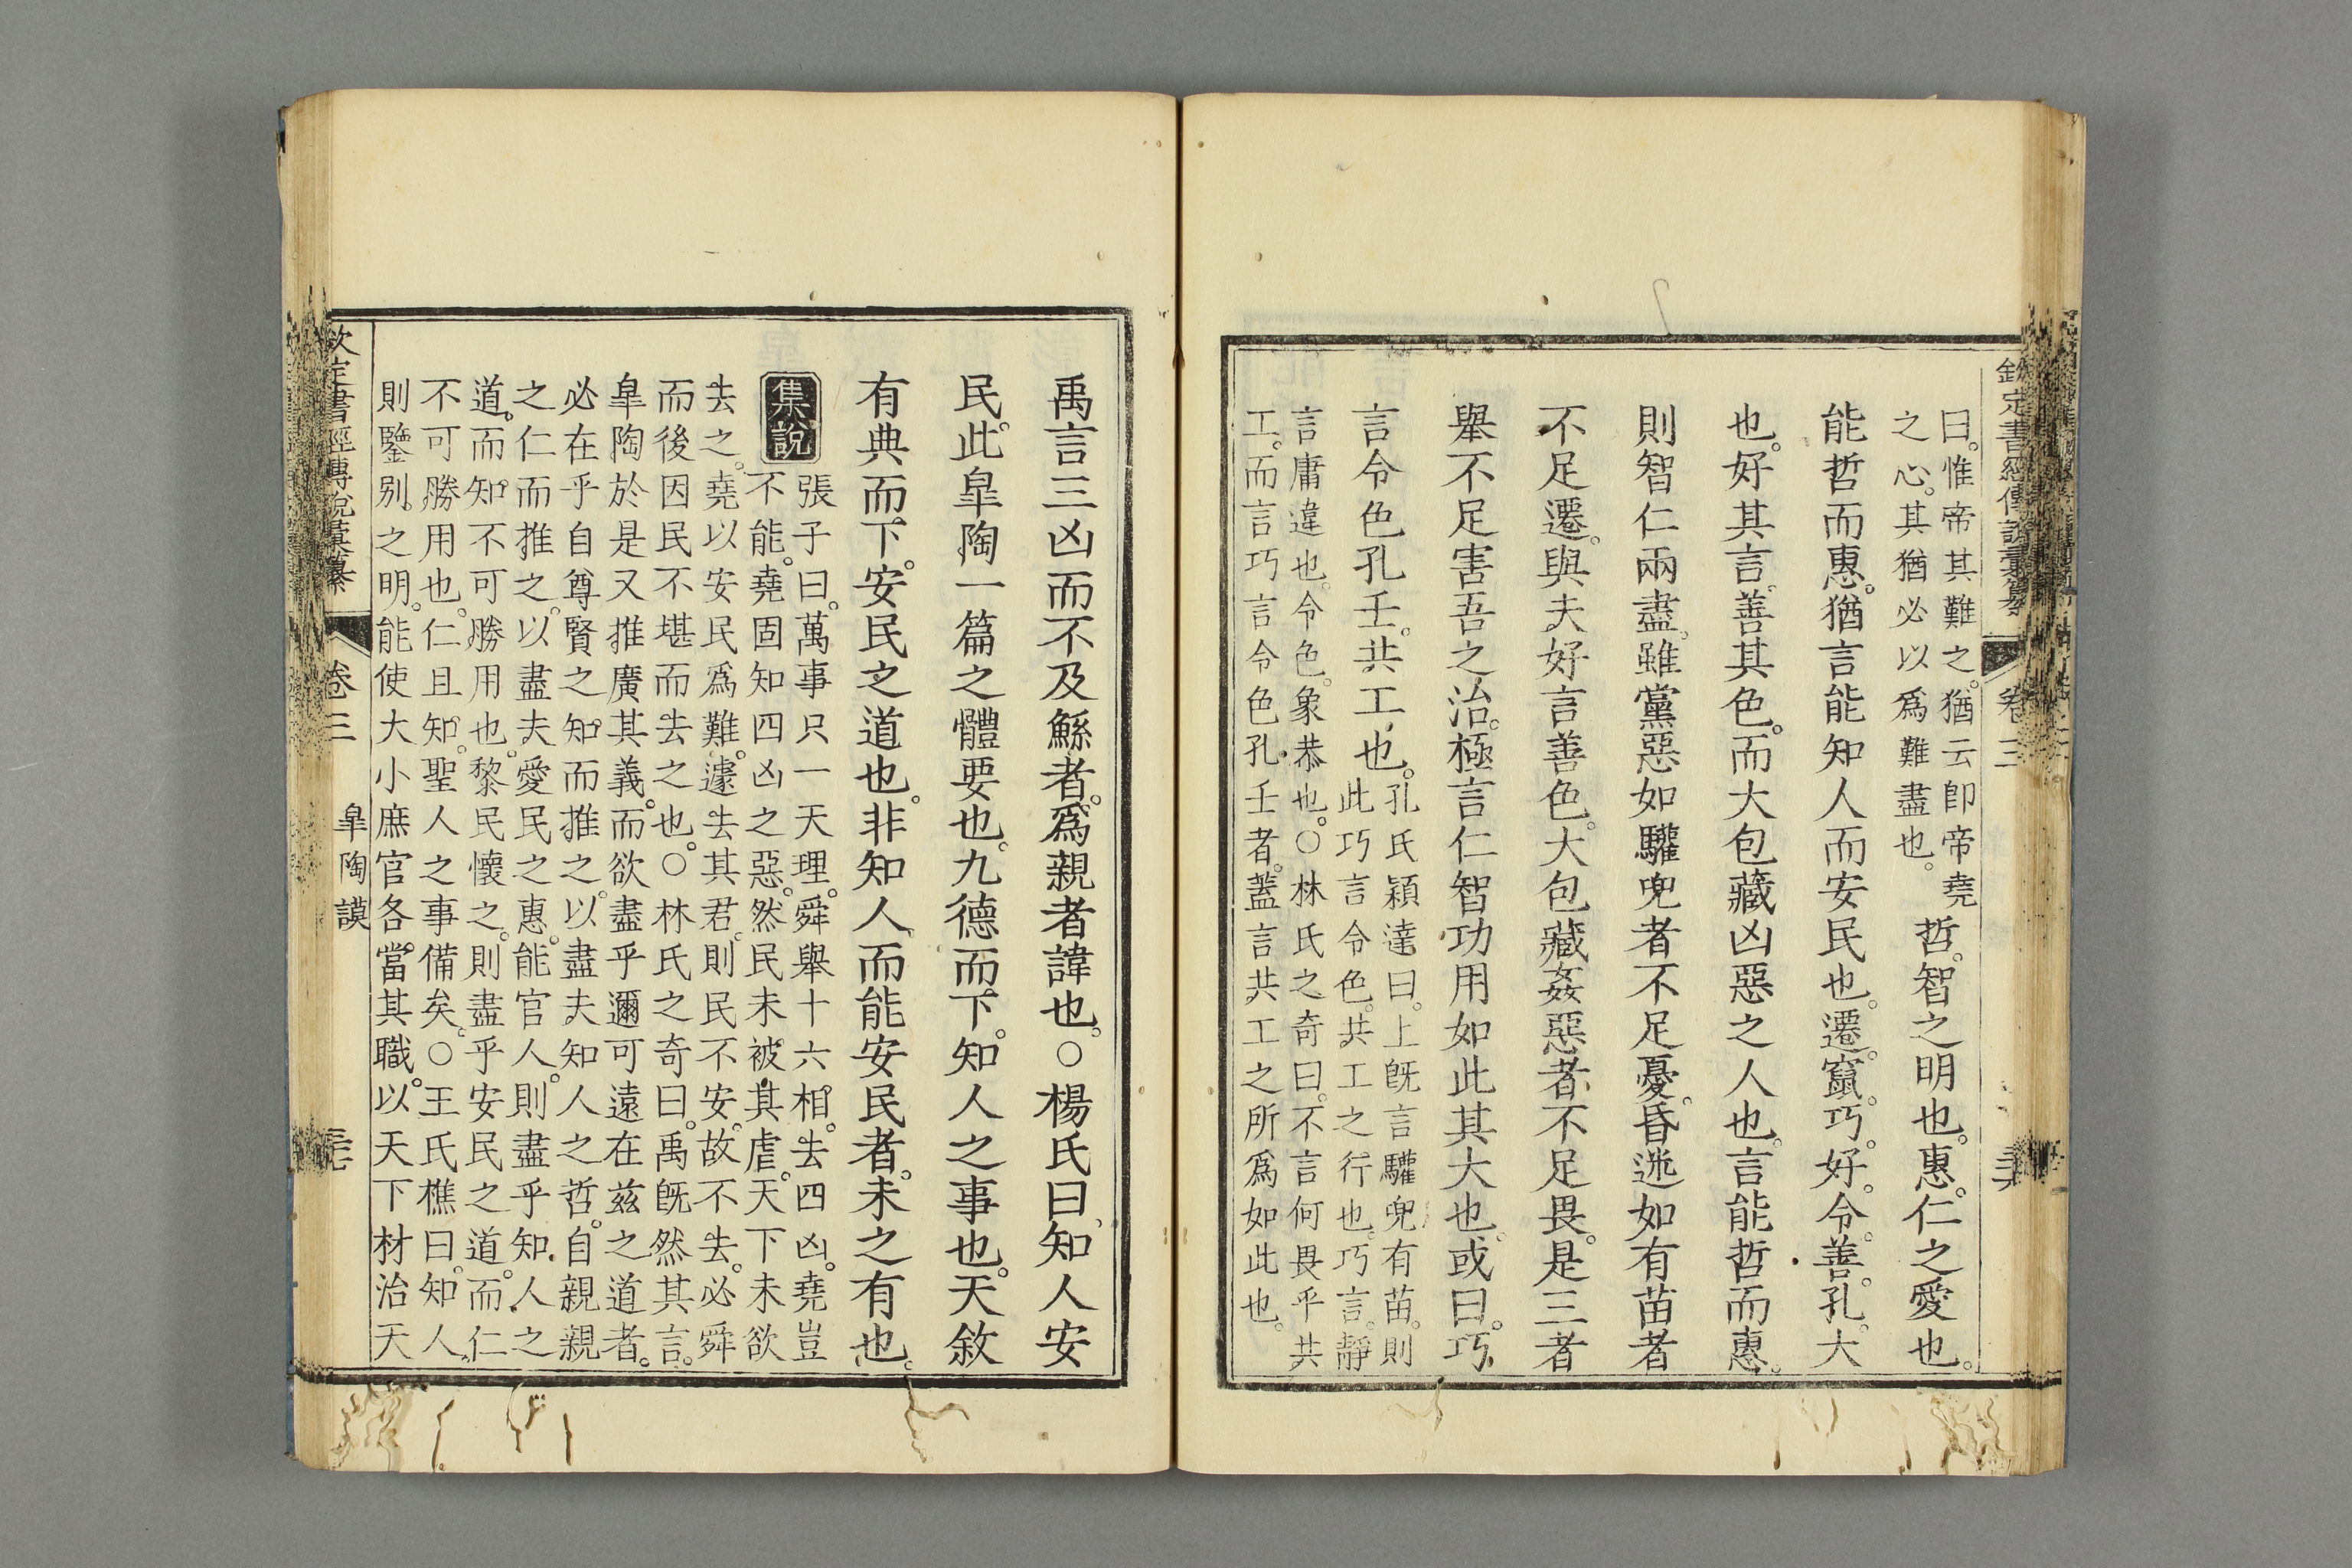 欽定書經傳說彙纂 卷三
曰。惟帝其難之。猶云即帝堯
之心。其猶必以為難盡也。
哲。智之明也。惠。仁之愛也。
能哲而惠。猶言能知人而安民也。遷。竄。巧。好。令。善。孔。大
也。好其言。善其色。而大包藏凶惡之人也。言能哲而惠。
則智仁兩盡。雖黨惡如驩兜者不足憂。昏迷如有苗者
不足遷。與夫好言善色。大包藏姦惡者。不足畏。是三者
舉不足害吾之治。極言仁智功用如此其大也。或曰。巧
言令色孔壬。共工也。
孔氏穎達曰。上旣言驩兜有苗。則
此巧言令色。共工之行也。巧言。靜
言庸違也。令色。象恭也。○林氏之奇曰。不言何畏乎共
工。而言巧言令色孔壬者。蓋言共工之所為如此也。
禹言三凶而不及鯀者。爲親者諱也。○楊氏曰。知人安
民。此皐陶一篇之體要也。九德而下。知人之事也。天敘
有典而下。安民之道也。非知人。而能安民者。未之有也。
集說
張子曰。萬事只一天理。舜舉十六相。去四凶。堯豈
不能。堯固知四凶之惡。然民未被其虐。天下未欲
去之。堯以安民爲難。遽去其君。則民不安。故不去。必舜
而後因民不堪而去之也。○林氏之奇曰。禹旣然其言。
皐陶於是又推廣其義。而欲盡乎邇可遠在茲之道者。
必在乎自尊賢之知。而推之。以盡夫知人之哲。自親親
之仁而推之。以盡夫愛民之惠。能官人。則盡乎知人之
道。而知不可勝用也。黎民懷之。則盡乎安民之道。而仁
不可勝用也。仁且知。聖人之事備矣。○王氏樵曰。知人。
則鑒別。之明。能使大小庶官各當其職。以天下材治天
欽定書經傳說彙纂 卷三 皐陶謨